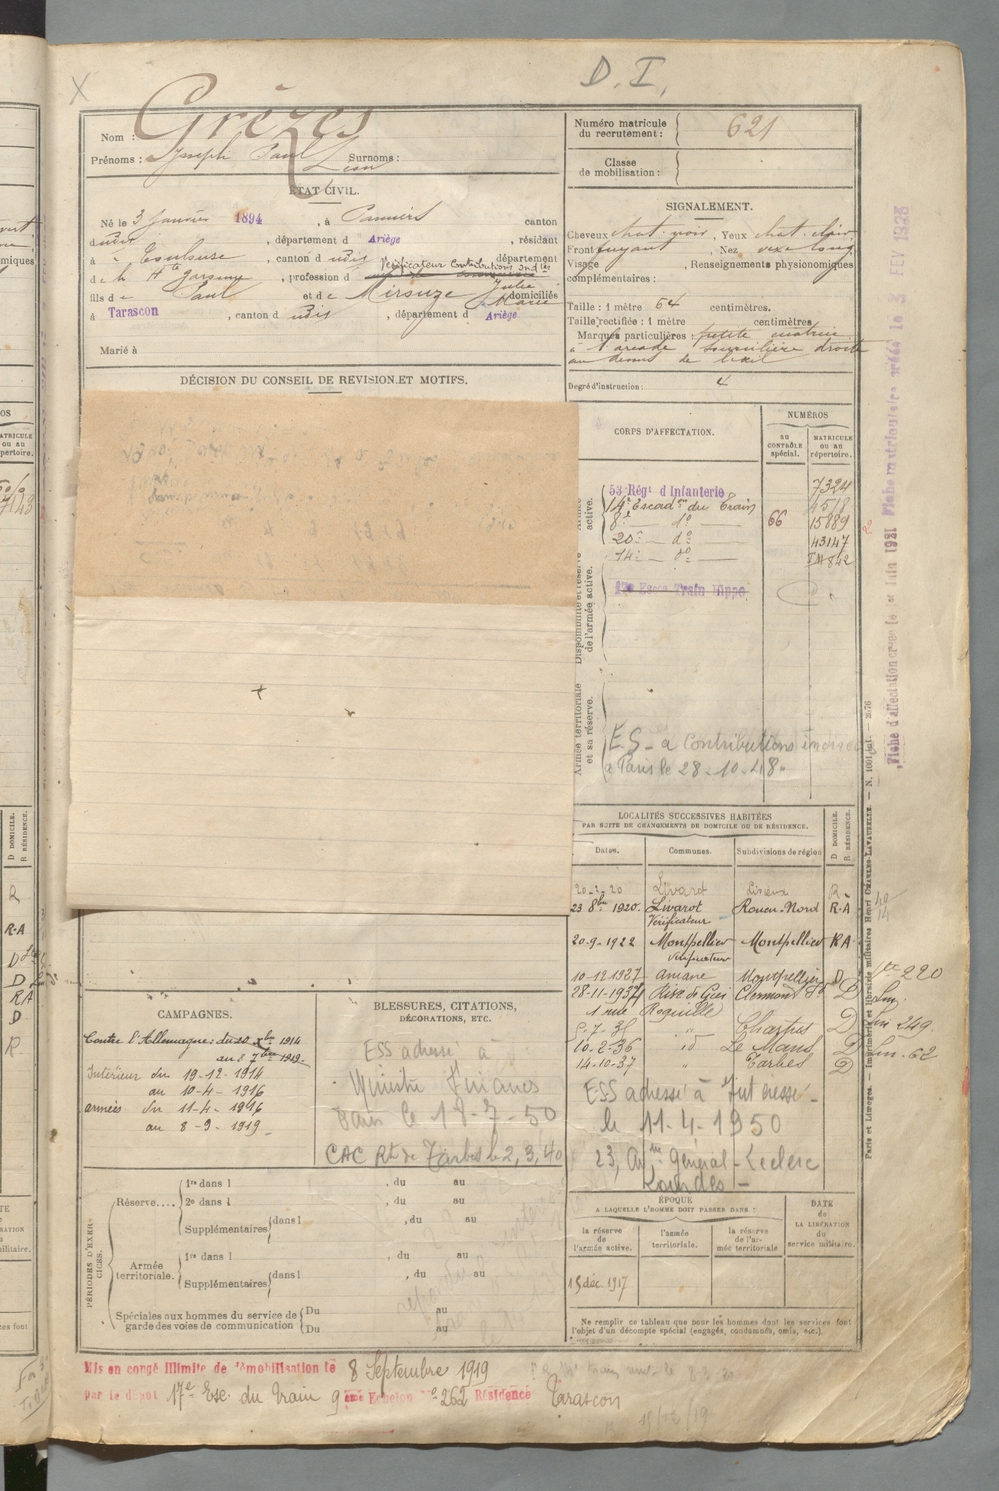 X
D. I.
Nom : Grèzes
Prénoms : Joseph Paul Léon Surnoms :
ÉTAT CIVIL.
Né le 3 Janvier 1894, à Pamiers canton
dudit, département d Ariège, résidant
à Toulouse, canton d udit département
de la Hte Garonne, profession d Vérificateur Contributions Indtes
fils de Paul et de Mirouze Julie Marie domiciliés
à Tarascon, canton d udit, département d Ariège
Marié à
DÉCISION DU CONSEIL DE REVISION ET MOTIFS.
Numéro matricule du recrutement : 621
Classe de mobilisation :
SIGNALEMENT.
Cheveux chat. noir, Yeux chat. clair
Front fuyant, Nez vexe long
Visage , Renseignements physionomiques
complémentaires :
Taille : 1 mètre 64 centimètres.
Taille rectifiée : 1 mètre centimètres
Marques particulières petite cicatrice
à l'arcade sourcilière droite
au dessus de l'œil
Degré d'instruction : 4
CORPS D'AFFECTATION.
NUMÉROS
AU CONTRÔLE spécial.
MATRICULE OU AU répertoire.
53 Régt d'Infanterie 7324
14e Escadon du Train 4518
8e do 66 15889
20e do 43147
14e do
Train Hippo
Disponibilité et réserve de l'armée active.
Armée territoriale et sa réserve.
E S - a Contributions indirec
à Paris le 28-10-48.
Fiche matriculaire créée le 3 FEV 1923
Fiche d'affectation créée le Juin 1931
LOCALITÉS SUCCESSIVES HABITÉES
PAR SUITE DE CHANGEMENTS DE DOMICILE OU DE RÉSIDENCE.
D DOMICILE.
R RÉSIDENCE.
Dates. Communes. Subdivisions de région
20-2-20 Livarot Lisieux R
23 8bre 1920. Livarot Rouen-Nord R.A
Vérificateur
20-9-1922 Montpellier Montpellier RA
Vérificateur
10-12-1927 Aniane Montpellier D
28-11-1934 Rive de Gier Clermont Fd D
1 rue Roquille
Chartres D
10-2-36 id Le Mans D
14-10-37 Tarbes D
ESS adressé à Intéressé
le 11-4-1950
23, Av. du général-Leclerc
Lourdes -
220
249
62
CAMPAGNES.
Contre l'Allemagne : du 20 Xbre 1914
au 8 7bre 1919
Intérieur du 19-12-1914
au 10-4-1916
armées du 11-4-1916
au 8-9-1919
BLESSURES, CITATIONS,
DÉCORATIONS, ETC.
ESS adressé à
Ministre Finances
Paris le 18-7-50
CAC Rt de Tarbes le 2,3,40
PÉRIODES D'EXERCICES.
Réserve.... 1re dans l , du au
2e dans l , du au
Supplémentaires dans l , du au
Armée territoriale. 1re dans l , du au
Supplémentaires dans l , du au
Spéciales aux hommes du service de garde des voies de communication Du au
Du au
ÉPOQUE
A LAQUELLE L'HOMME DOIT PASSER DANS :
la réserve de l'armée active.
l'armée territoriale.
la réserve de l'armée territoriale
DATE de LA LIBÉRATION du service militaire.
15 déc. 1917
Ne remplir ce tableau que pour les hommes dont les services font
l'objet d'un décompte spécial (engagés, condamnés, omis, etc.).
Mis en congé illimité de démobilisation le 8 Septembre 1919
par le dépôt 17e Esc. du Train 9ème Echelon no 262 Résidence Tarascon
Paris et Limoges. — Imprimerie et librairie militaires Henri CHARLES-LAVAUZELLE.